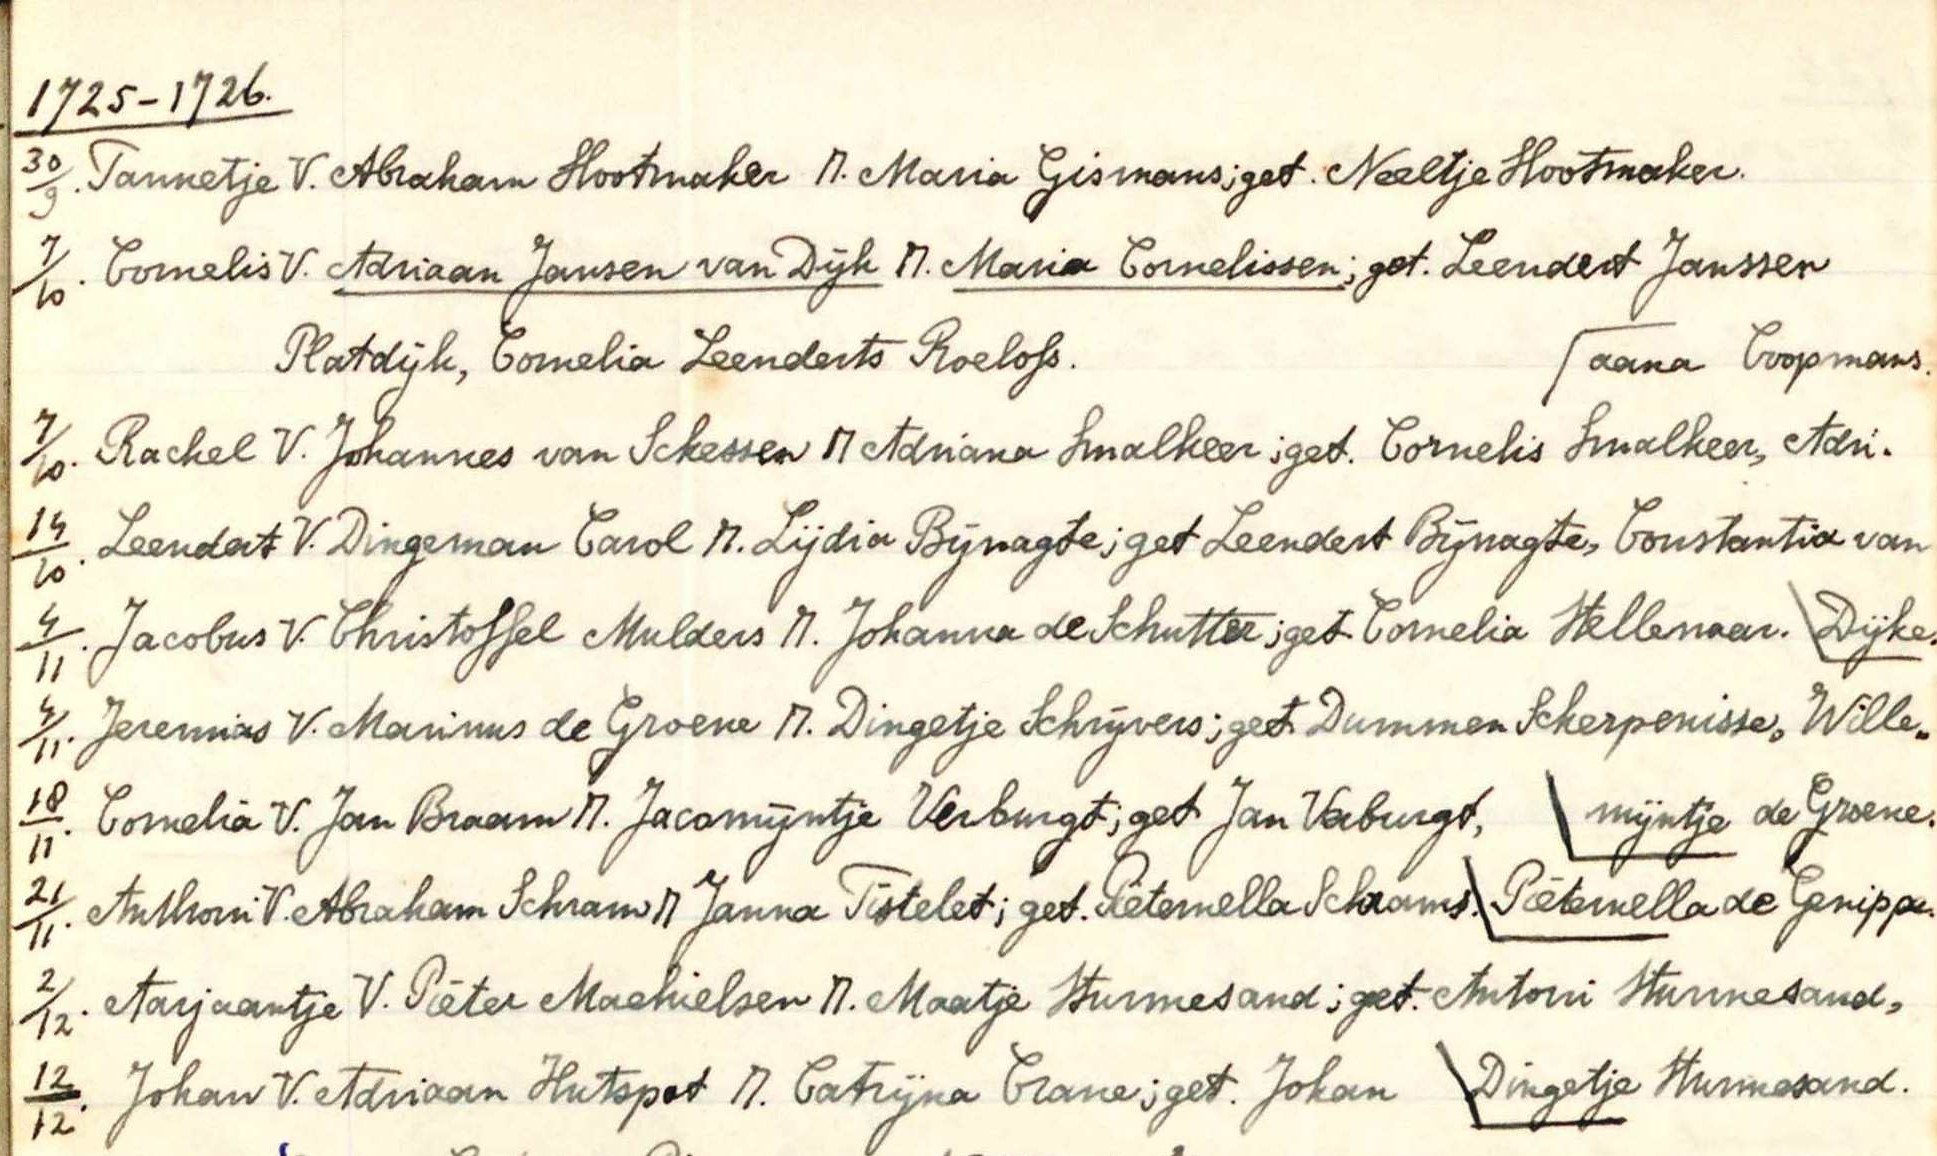 1725-1726.
30/9. Tannetje V. Abraham Hootmaker M. Maria Gismans; get. Neeltje Hootmaker.
7/10. Cornelis V. Adriaan Jansen van Dijk M. Maria Cornelissen; get. Leendert Janssen
Platdijk, Cornelia Leenderts Roelofs. aana Coopmans.
7/10. Rachel V. Johannes van Schessen M Adriana Smalkeer; get. Cornelis Smalkeer, Adri.
14/10. Leendert V. Dingeman Carol M. Lijdia Bijnagte; get Leendert Bijnagte, Constantia van
4/11. Jacobus V. Christoffel Mulders M. Johanna de Schutter; get Cornelia Hellenaar. Dijke.
4/11. Jeremias V. Marinus de Groene M. Dingetje Schrijvers; get Dummen Scherpenisse, Wille„
18/11. Cornelia V. Jan Braam M. Jacomijntje Verburgt; get Jan Verburgt, mijntje de Groene.
21/11. Anthoni V. Abraham Schram M Janna Tistelet; get. Pieternella Schrams. Pieternella de Genippe.
2/12. Aarjaantje V. Pieter Machielsen M. Maatje Hurmesand; get. Antoni Hurmesand,
12/12. Johan V. Adriaan Hutspot M. Catrijna Crane; get. Johan Dingetje Hurmesand.